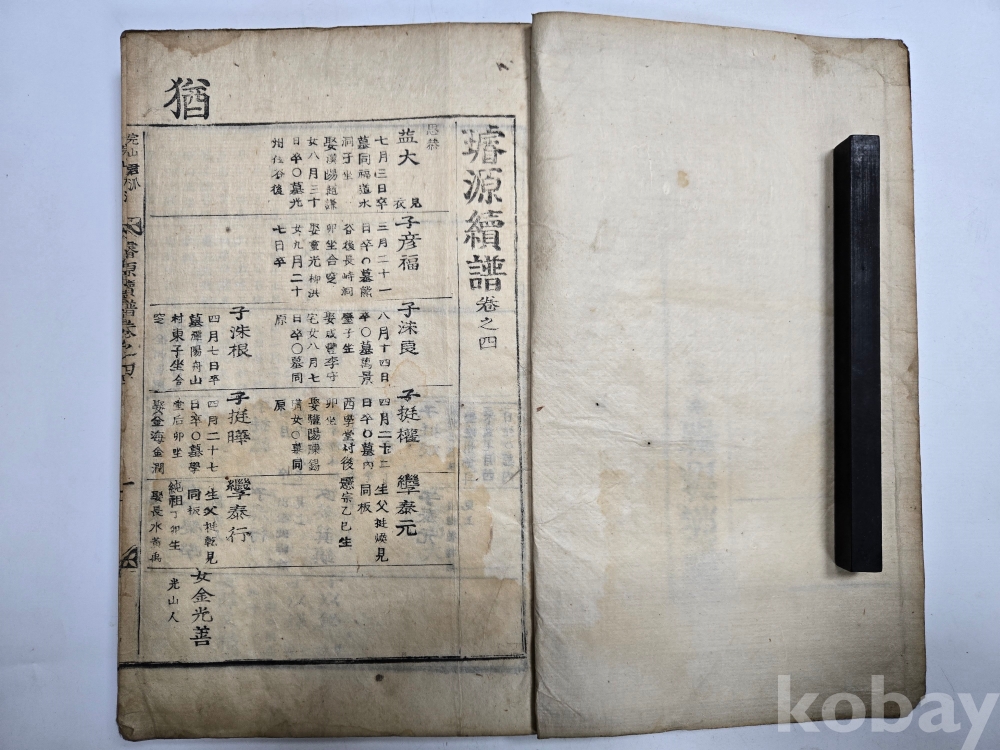 猶
璿源續譜 卷之四
益大
七月三日卒
墓同福道水
洞子坐
娶漢陽趙謙
女八月三十
日卒〇墓光
州
見
子彦福
三月二十一
日卒〇墓熊
谷後長峙洞
卯坐合窆
娶重光柳洪
女九月二十
七日卒
子洙良
八月十四日
卒〇墓萬景
壁子坐
娶咸豊李守
宅女八月七
日卒〇墓同
原
子洙根
四月七日卒
墓潭陽舟山
村東子坐合
窆
子挺權
四月二十二
日卒〇墓內
西學堂村後
卯坐
娶驪陽陳錫
女〇墓同
原
子挺曄
四月二十七
日卒〇墓學
堂后卯坐
娶金海金潤
繼泰元
生父挺煥見
同板
憲宗乙巳生
繼泰行
生父挺乾見
同板
純祖丁卯生
娶長水黃
女金光善
光山人
璿源續譜卷之四
kobay